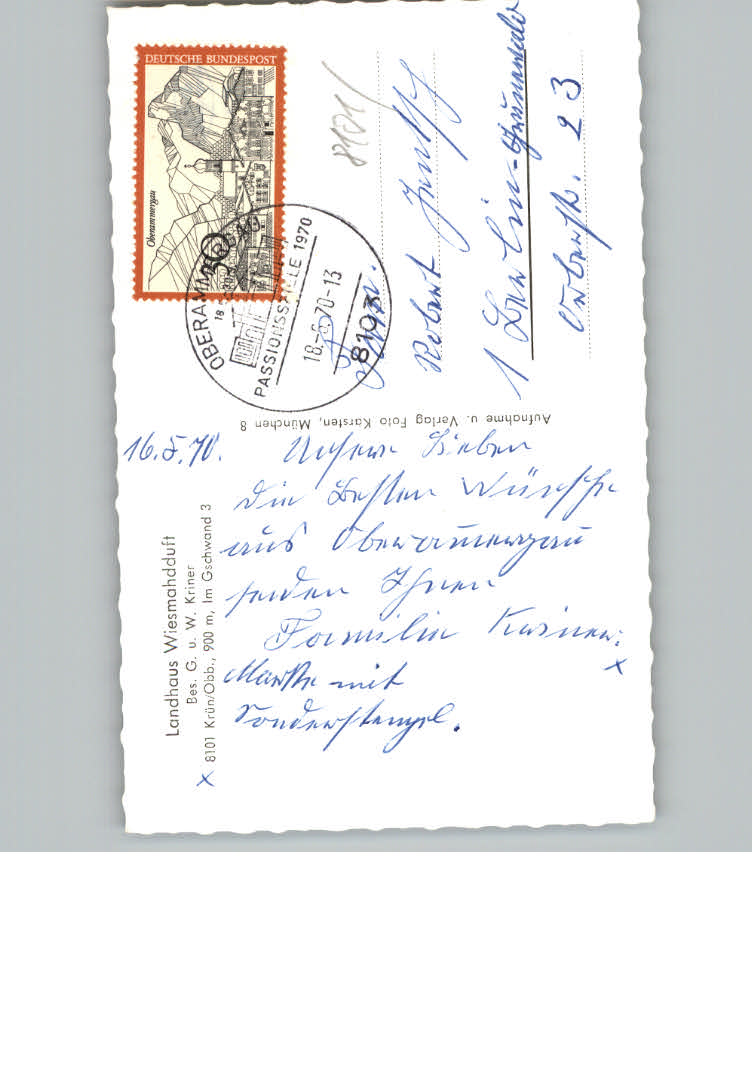 DEUTSCHE BUNDESPOST
Oberammergau
30
OBERAMMERGAU
PASSIONSSPIELE 1970
18.-5.70-13
8103
8101/
Robert
1 Berlin-Grunewald
23
Aufnahme u. Verlag Foto Karsten, München 8
Landhaus Wiesmahdduft
Bes. G. u. W. Kriner
8101 Krün/Obb., 900 m, Im Gschwand 3
x
16.5.70.
Unsere Lieben
die besten Wünsche
aus Oberammergau
senden Ihnen
Familie Kriner.
x
Marke mit
Sonderstempel.